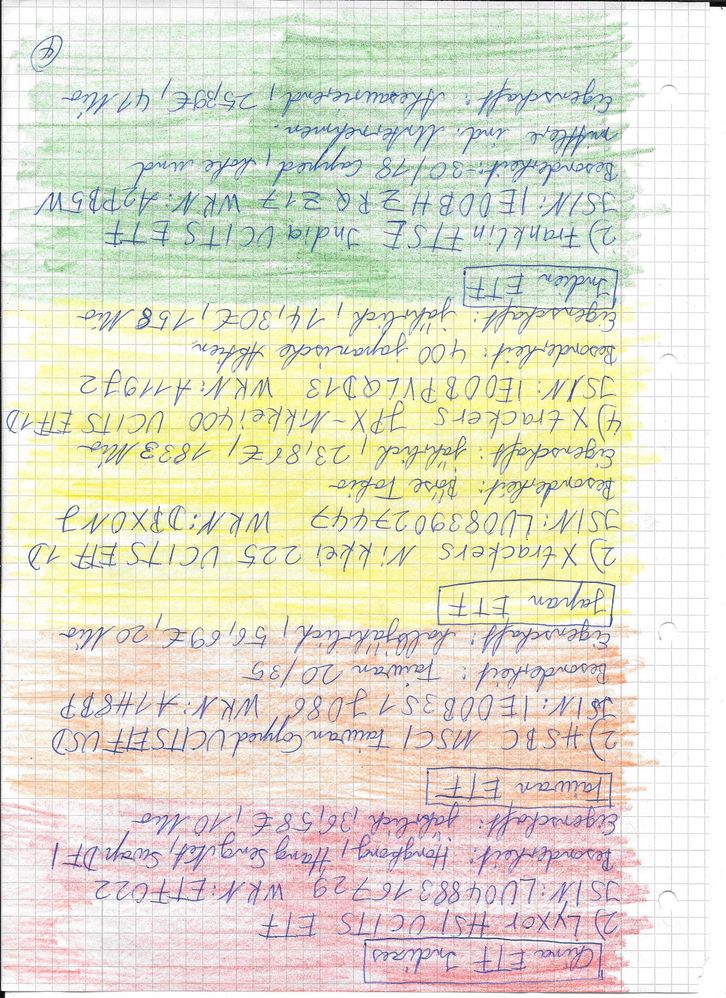 China ETF Indizes
2) Lyxor HSI UCITS ETF
JSIN: LU0488316729 WKN: ETF022
Besonderheit: Hongkong, Hang Seng Net, Swap DTF1
Eigenschaft: jährlich, 36,58 €, 10 Mio
Taiwan ETF
2) HSBC MSCI Taiwan Capped UCITS ETF USD
JSIN: IE00B3S1J086 WKN: A1H8BP
Besonderheit: Taiwan 20/35
Eigenschaft: halbjährlich, 56,69 €, 20 Mio
Japan ETF
2) Xtrackers Nikkei 225 UCITS ETF 1D
JSIN: LU0839027447 WKN: DBX0NJ
Besonderheit: Börse Tokio
Eigenschaft: jährlich, 23,86 €, 1833 Mio
4) Xtrackers JPX-Nikkei 400 UCITS ETF 1D
JSIN: IE00BPVLQD13 WKN: A119J2
Besonderheit: 400 japanische Aktien
Eigenschaft: jährlich, 14,30 €, 158 Mio
Indien ETF
2) Franklin FTSE India UCITS ETF
JSIN: IE00BHZRQZ17 WKN: A2PB5W
Besonderheit: 30/18 Capped, hohe und
mittlere ind. Unternehmen.
Eigenschaft: Thesaurierend, 25,39 €, 41 Mio